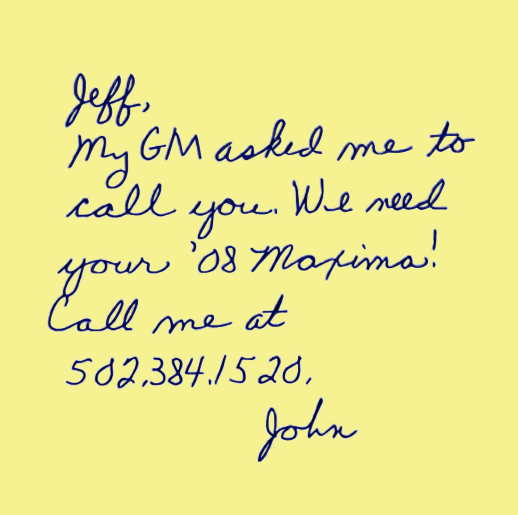 Jeff,
My GM asked me to
call you. We need
your '08 Maxima!
Call me at
502.384.1520.
John